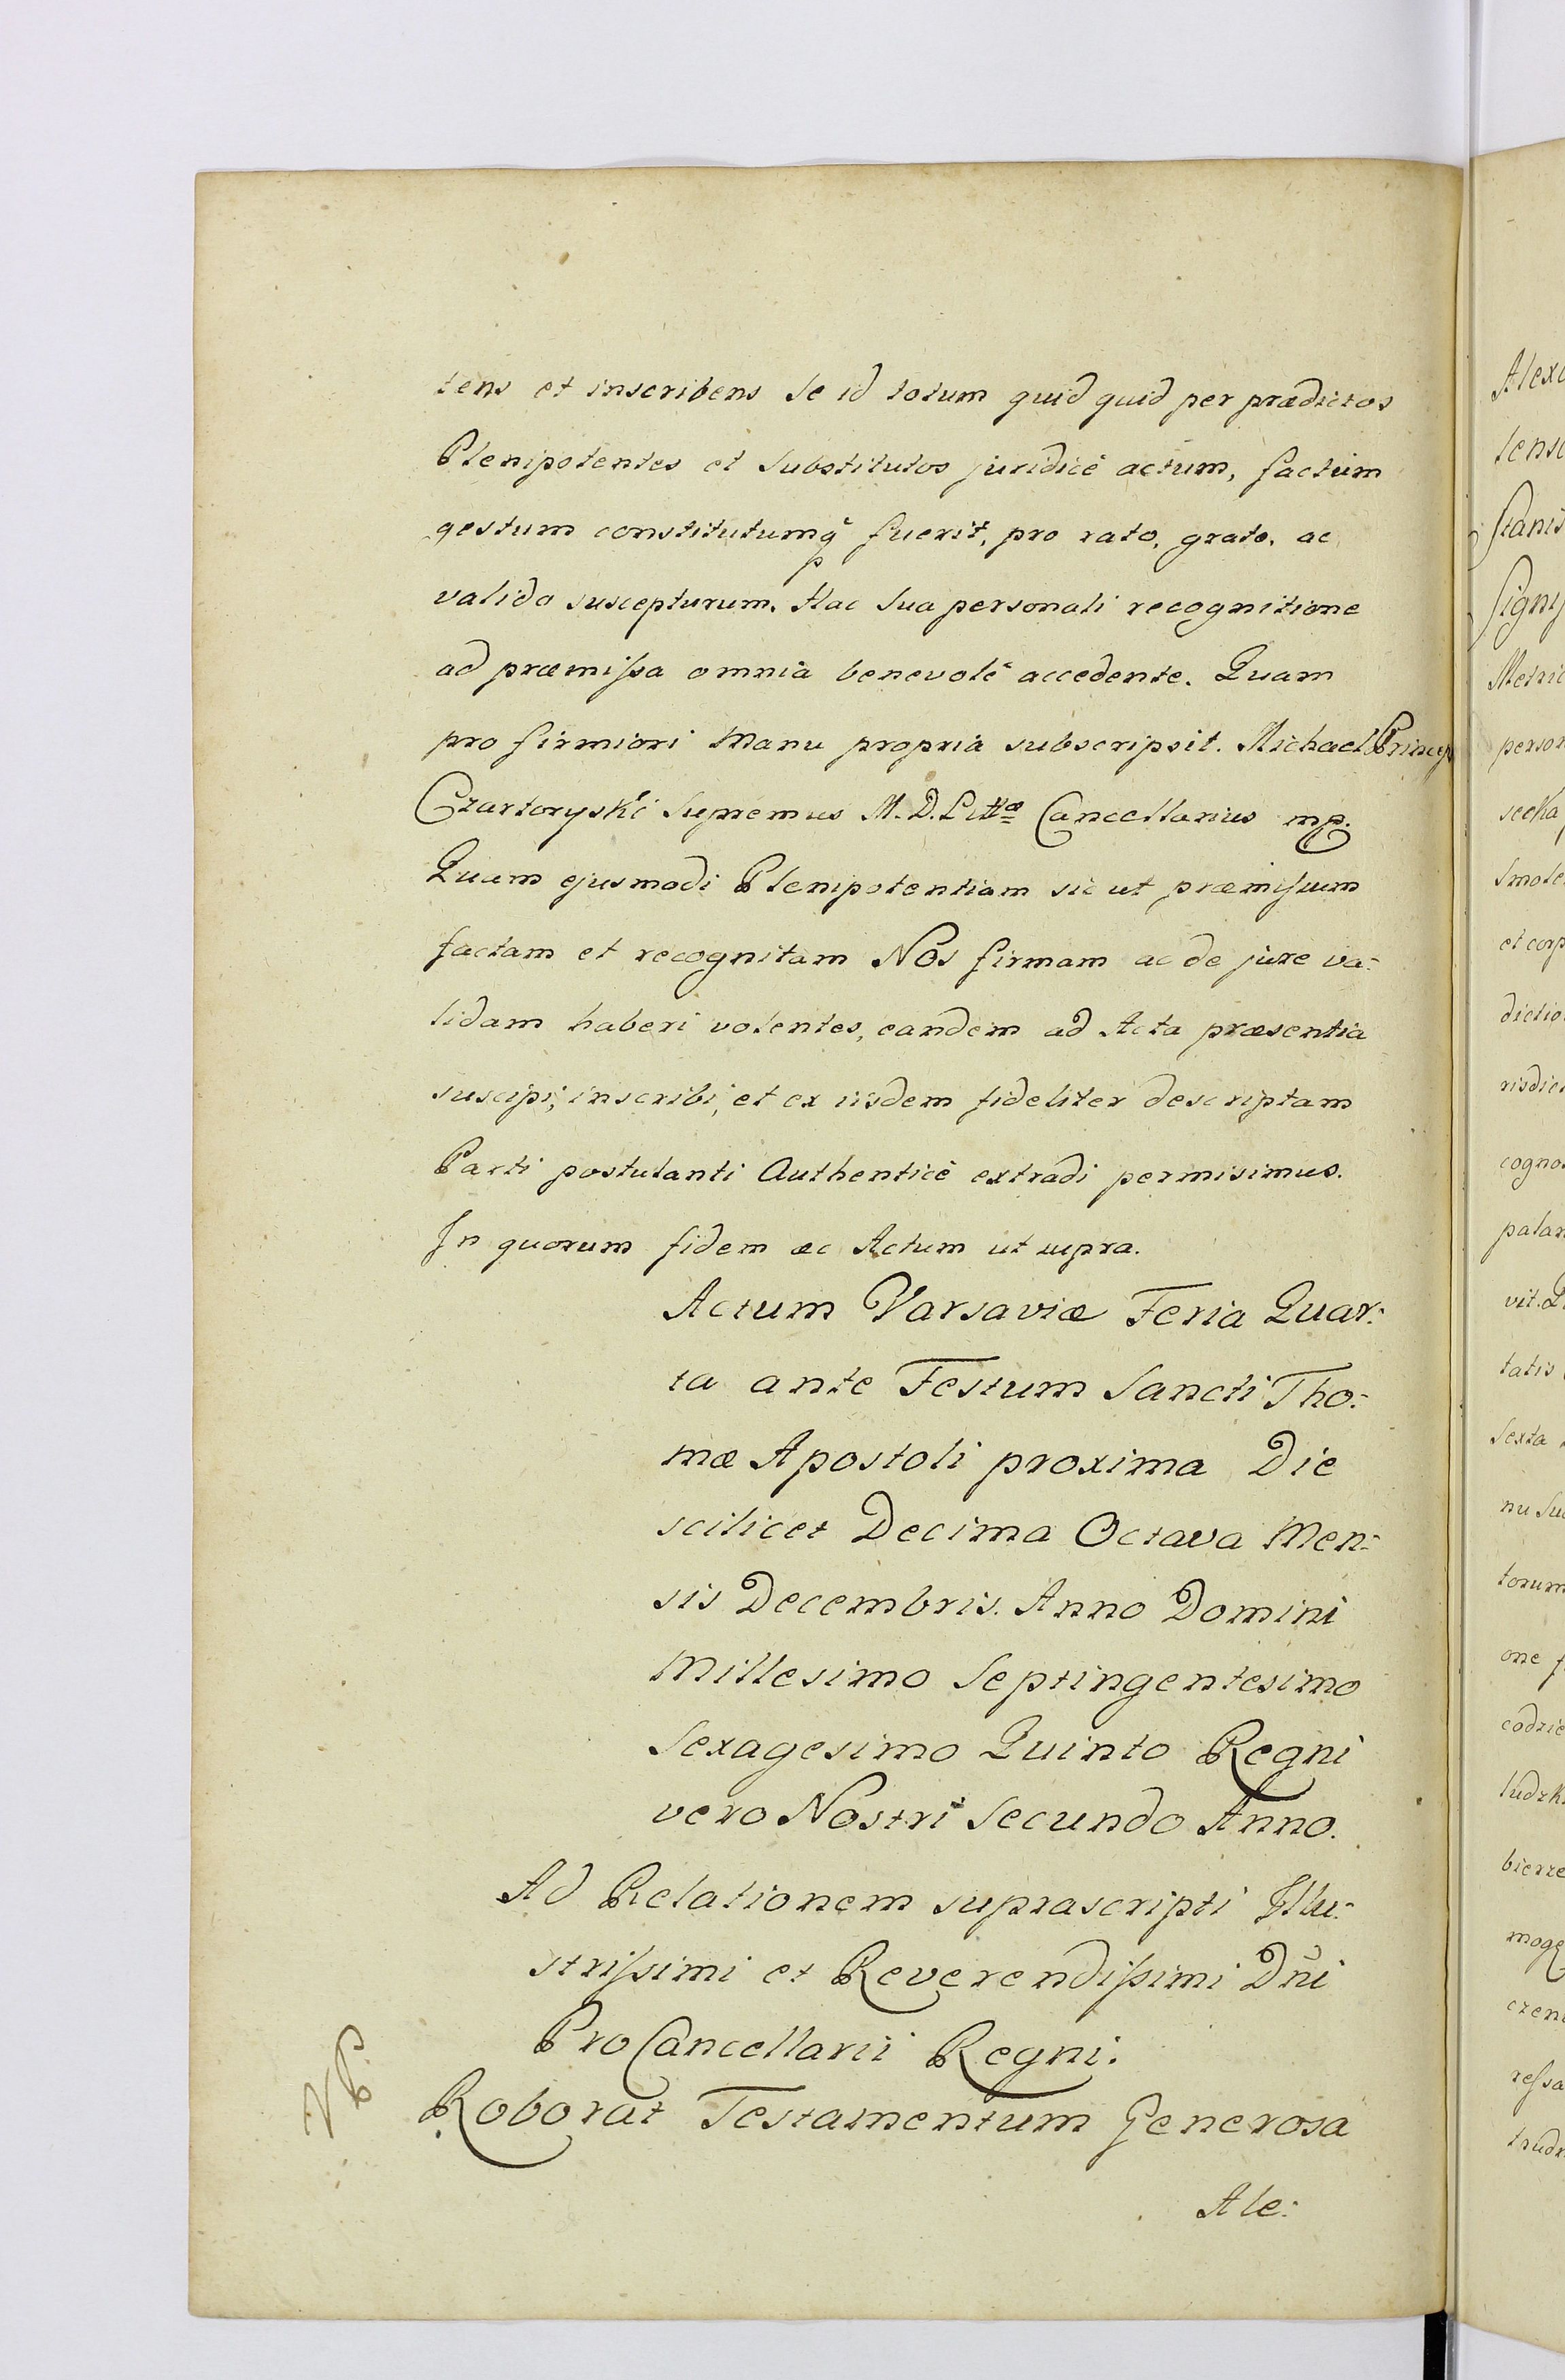 tens et inscribens se id totum quid quid per prædictos
Plenipotentes et Substitutos juridicè actum, factum
gestum constitutumq̃ fuerit, pro rato, grato, ac
valido suscepturum. Hac Sua personali recognitione
ad præmissa omnia benevolè accedente. Quam
pro firmiori Manu propria subscripsit. Michael Princeps
Czartoryski Supremus M. D. Littæ Cancellarius mp.
Quam ejusmodi Plenipotentiam sic ut præmissum
factam et recognitam Nos firmam ac de jure va:
lidam haberi volentes, eandem ad Acta præsentia
suscipi, inscribi, et ex iisdem fideliter descriptam
Parti postulanti Authenticè extradi permisimus.
In quorum fidem ac Actum ut supra.
Actum Varsaviæ Feria Quar:
ta ante Festum Sancti Tho:
mæ Apostoli proxima Die
scilicet Decima Octava Men:
sis Decembris. Anno Domini
Millesimo Septingentesimo
Sexagesimo Quinto Regni
vero Nostri Secundo Anno.
Ad Relationem suprascripti Illu:
strissimi et Reverendissimi Dñi
ProCancellarii Regni.
Roborat Testamentum Generosa
Ale: